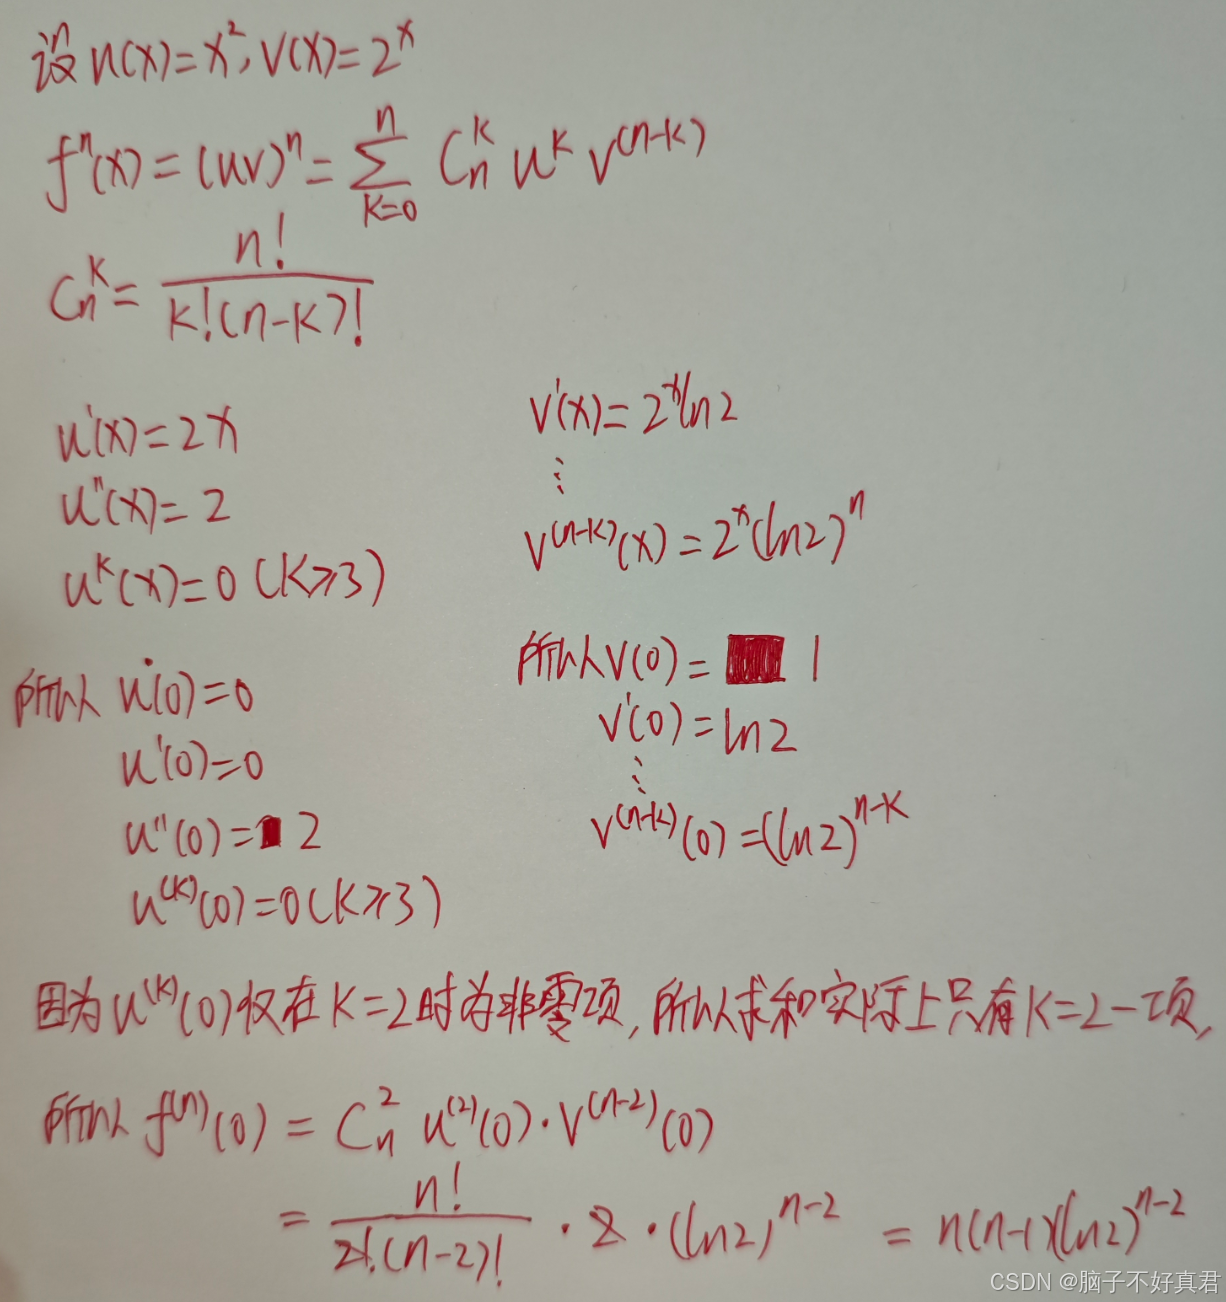 设 u(x)=x², v(x)=2ˣ
fⁿ(x)=(uv)ⁿ=∑_{k=0}^{n} C_n^k u^k v^(n-k)
C_n^k = n! / k!(n-k)!
u'(x)=2x
u''(x)=2
u^k(x)=0 (k≥3)
v'(x)=2ˣln2
⋮
v^(n-k)(x)=2ˣ(ln2)ⁿ
所以 u(0)=0
u'(0)=0
u''(0)=2
u^(k)(0)=0(k≥3)
所以v(0)=1
v'(0)=ln2
⋮
v^(n-k)(0)=(ln2)^{n-k}
因为u^(k)(0)仅在k=2时为非零项,所以求和实际上只有k=2一项,
所以 f^(n)(0) = C_n^2 u^(2)(0)·v^(n-2)(0)
= n! / 2!(n-2)! · 2 · (ln2)^{n-2} = n(n-1)(ln2)^{n-2}
CSDN @脑子不好真君